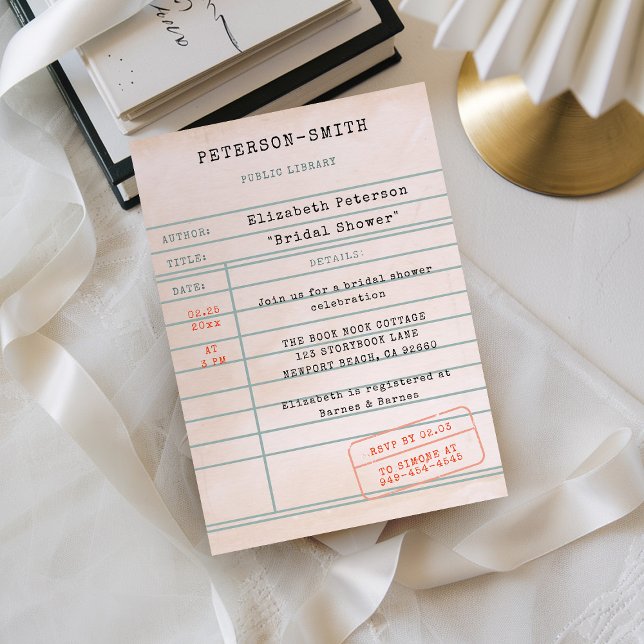 PETERSON-SMITH
PUBLIC LIBRARY
AUTHOR: Elizabeth Peterson
TITLE: "Bridal Shower"
DATE: DETAILS:
02.25
20xx
AT
3 PM
Join us for a bridal shower
celebration
THE BOOK NOOK COTTAGE
123 STORYBOOK LANE
NEWPORT BEACH, CA 92660
Elizabeth is registered at
Barnes & Barnes
RSVP BY 02.03
TO SIMONE AT
949-454-4545